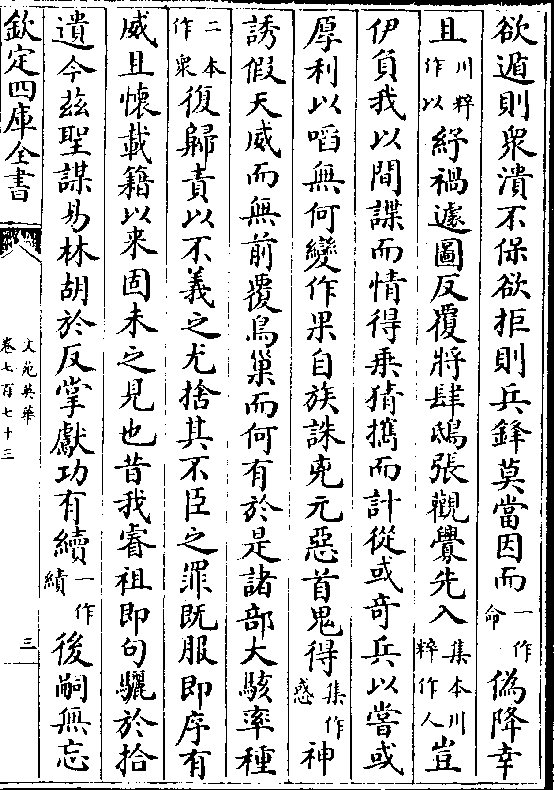 欲遁則衆潰不保欲拒則兵鋒莫當因而一作命偽降幸
且川粹作以紓禍遽圖反覆將肆鴟張觀釁先入集本川粹作人豈
伊負我以間諜而情得乗猜攜而計從或奇兵以嘗或
厚利以啗無何變作果自族誅兇元惡首鬼得集作惑神
誘假天威而無前覆鳥巢而何有於是諸部大駭率種
二本作衆復歸責以不義之尤捨其不臣之罪既服即序有
威且懐載籍以来固未之見也昔我睿祖即句驪於拾
遺今兹聖謀易林胡於反掌獻功有續一作績後嗣無忘
欽定四庫全書
文苑英華
卷七百七十三
三